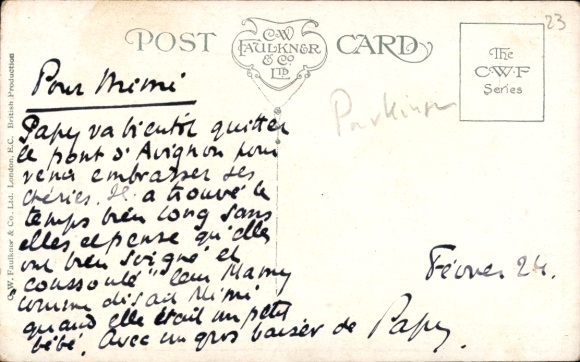 POST CARD
C.W.
FAULKNER
& CO.
LTD.
23
The
C·W·F
Series
C.W. Faulkner & Co., Ltd. London, E.C. British Production
Pour Mimi
Papy va bientôt quitter
le pont d'Avignon pour
venir embrasser ses
chéries. Il a trouvé le
temps bien long sans
elles et pense qu'elles
ont bien soigné et
"coussoulé" leur Mamy
comme disait Mimi
quand elle était un petit
bébé. Avec un gros baiser de Papy.
Février 24.
Parkinson